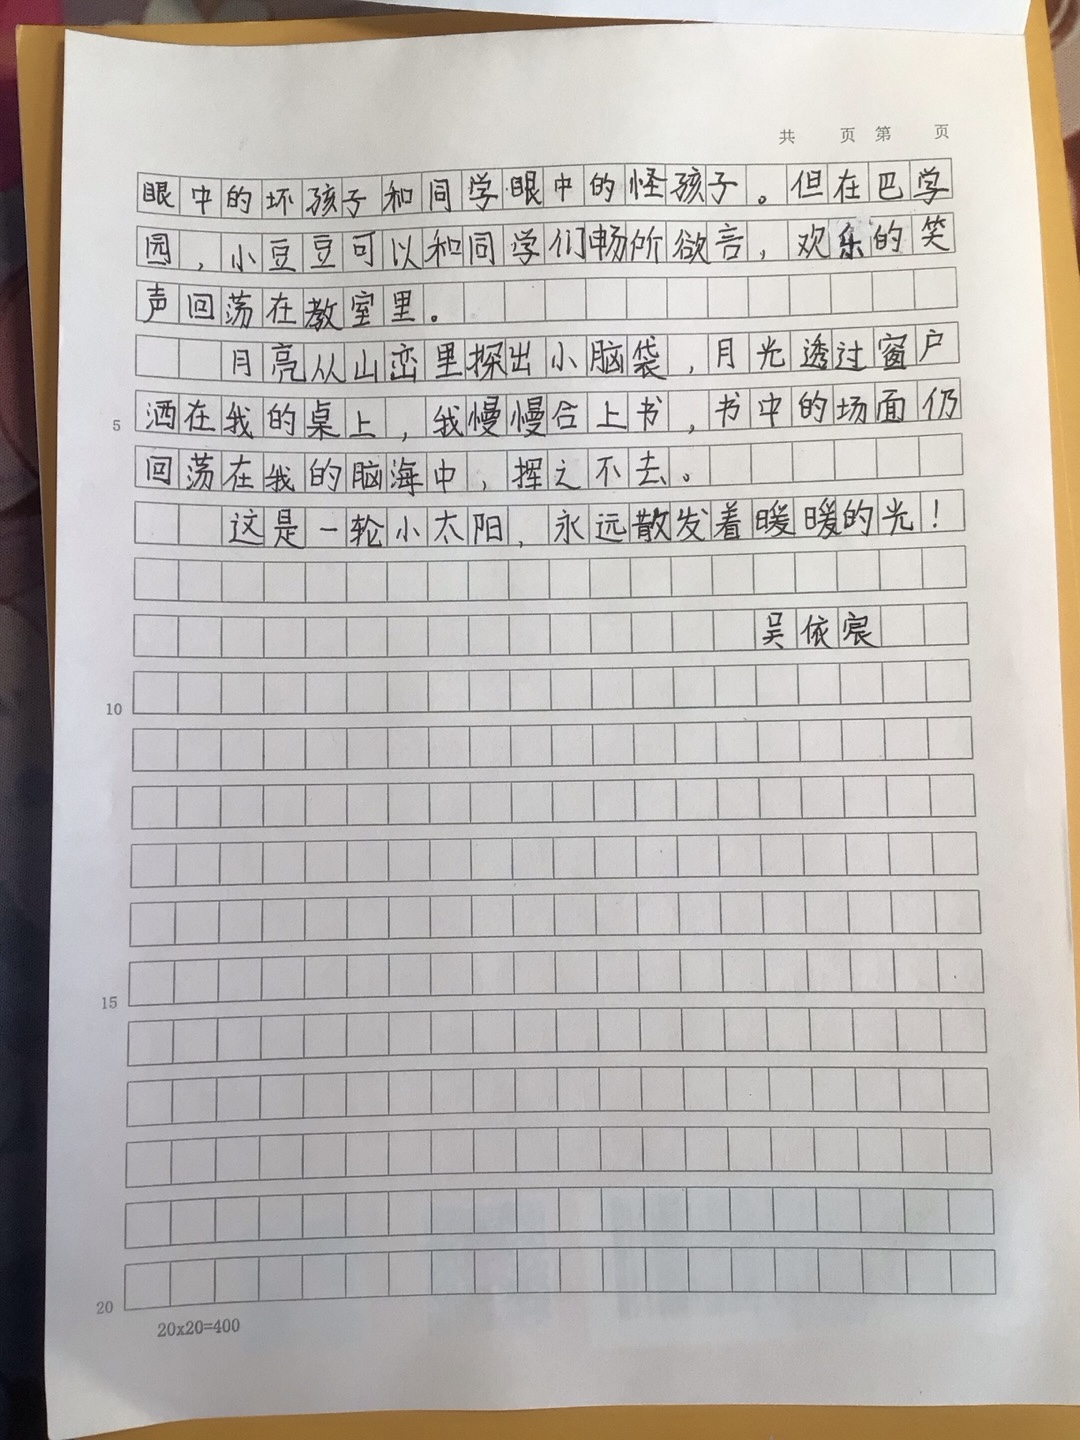 共 页 第 页
眼中的坏孩子和同学眼中的怪孩子。但在巴学
园，小豆豆可以和同学们畅所欲言，欢乐的笑
声回荡在教室里。
月亮从山峦里探出小脑袋，月光透过窗户
洒在我的桌上，我慢慢合上书，书中的场面仍
5
回荡在我的脑海中，挥之不去。
这是一轮小太阳，永远散发着暖暖的光！
吴依宸
10
15
20
20x20=400